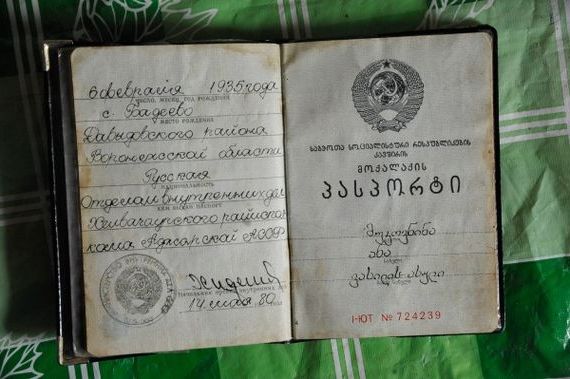 6 февраля 1935 года
число, месяц, год рождения
с. Бадеево
место рождения
Давыдовского района
Воронежской области
Русская
национальность
Отделом внутренних дел
кем выдан паспорт
Хелвачаурского
кома Аджарской АССР
14 мая 80 года
ᲡᲐᲑᲭᲝᲗᲐ ᲡᲝᲪᲘᲐᲚᲘᲡᲢᲣᲠᲘ ᲠᲔᲡᲞᲣᲑᲚᲘᲙᲔᲑᲘᲡ
ᲙᲐᲕᲨᲘᲠᲘᲡ
ᲛᲝᲥᲐᲚᲐᲥᲘᲡ
ᲞᲐᲡᲞᲝᲠᲢᲘ
ანა
სახელი
ვასილის ასული
I-ЮТ № 724239